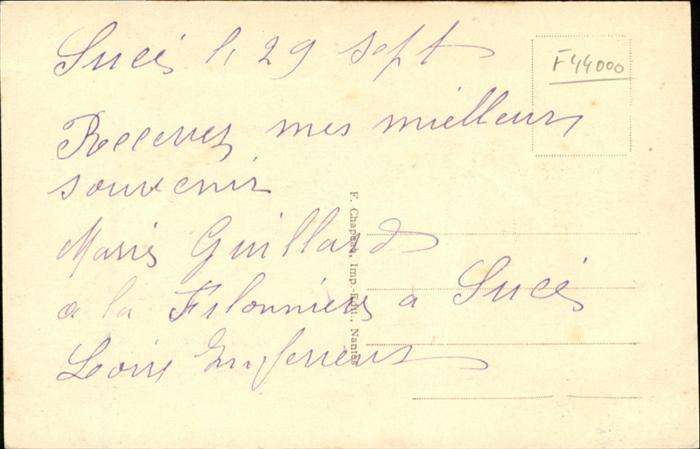 Sucé le 29 sept
F44000
Recevez mes meilleurs
souvenir
Marie Guillard
a la Filonnière a Sucé
Loire Inférieure
F. Chapeau, Imp.-Edit., Nantes